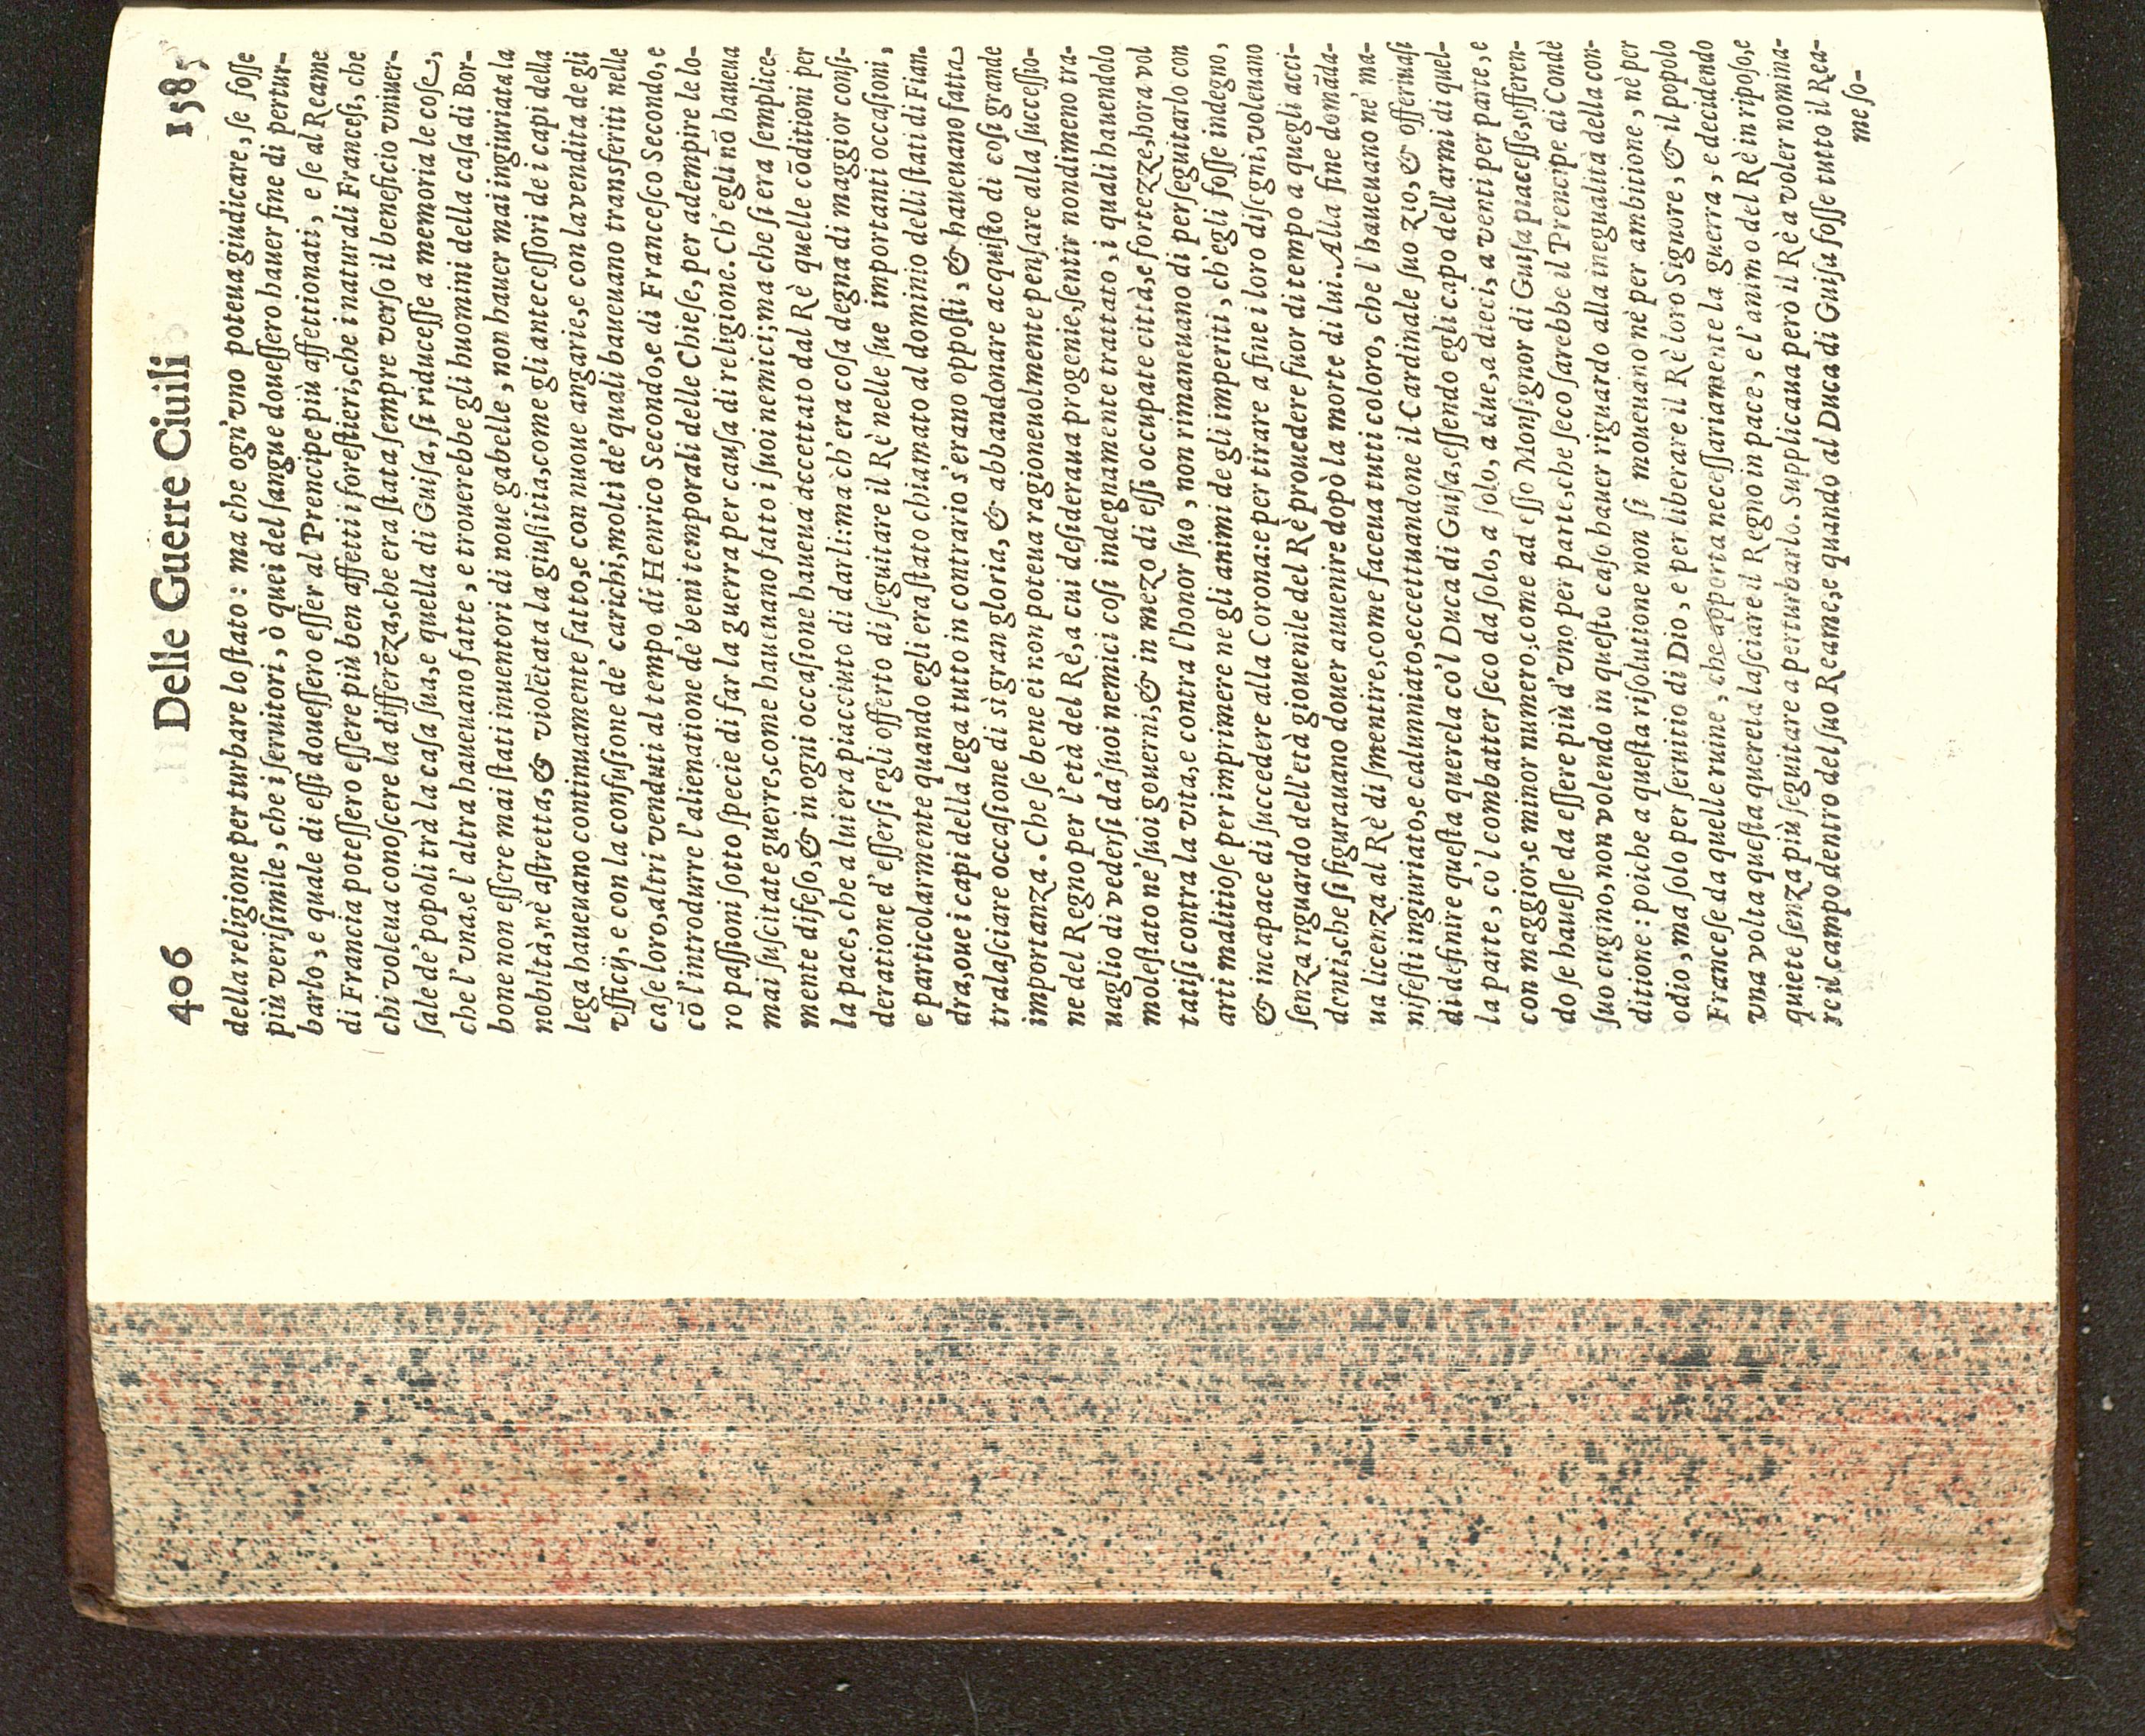 406 Delle Guerre Ciuili 1585
della religione per turbare lo ſtato: ma che ogn'vno poteua giudicare, ſe foſſe
più veriſimile, che i ſeruitori, ò quei del ſangue doueſſero hauer fine di pertur-
barlo, e quale di eſſi doueſſero eſſer al Prencipe più affettionati, e ſe al Reame
di Francia poteſſero eſſere più ben affetti i foreſtieri, che i naturali Franceſi, che
chi voleua conoſcere la differẽza, che era ſtata ſempre verſo il beneficio vniuer-
ſale de' popoli trà la caſa ſua, e quella di Guiſa, ſi riduceſſe a memoria le coſe,
che l'vna, e l'altra haueuano fatte, e trouerebbe gli huomini della caſa di Bor-
bone non eſſere mai ſtati inuentori di noue gabelle, non hauer mai ingiuriata la
nobiltà, nè aſtretta, & violẽtata la giuſtitia, come gli anteceſſori de i capi della
lega haueuano continuamente fatto, e con nuoue angarie, e con la vendita de gli
vfficij, e con la confuſione de' carichi, molti de' quali haueuano transferiti nelle
caſe loro, altri venduti al tempo di Henrico Secondo, e di Franceſco Secondo, e
cõ l'introdurre l'alienatione de' beni temporali delle Chieſe, per adempire le lo-
ro paſſioni ſotto ſpecie di far la guerra per cauſa di religione. Ch'egli nõ haueua
mai ſuſcitate guerre, come haueuano fatto i ſuoi nemici; ma che ſi era ſemplice-
mente difeſo, & in ogni occaſione haueua accettato dal Rè quelle cõditioni per
la pace, che a lui era piacciuto di darli: ma ch'era coſa degna di maggior conſi-
deratione d'eſſerſi egli offerto di ſeguitare il Rè nelle ſue importanti occaſioni,
e particolarmente quando egli era ſtato chiamato al dominio delli ſtati di Fian.
dra, oue i capi della lega tutto in contrario s'erano oppoſti, & haueuano fatta
tralaſciare occaſione di sì gran gloria, & abbandonare acquiſto di coſi grande
importanza. Che ſe bene ei non poteua ragioneuolmente penſare alla ſucceſſio-
ne del Regno per l'età del Rè, a cui deſideraua progenie, ſentir nondimeno tra-
uaglio di vederſi da' ſuoi nemici coſi indegnamente trattato, i quali hauendolo
moleſtato ne' ſuoi gouerni, & in mezo di eſſi occupate città, e fortezze, hora vol
tatiſi contra la vita, e contra l'honor ſuo, non rimaneuano di perſeguitarlo con
arti malitioſe per imprimere ne gli animi de gli imperiti, ch'egli foſſe indegno,
& incapace di ſuccedere alla Corona: e per tirare a fine i loro diſegni, voleuano
ſenza riguardo dell'età giouenile del Rè prouedere fuor di tempo a quegli acci-
denti, che ſi figurauano douer auuenire dopò la morte di lui. Alla fine domãda-
ua licenza al Rè di ſmentire, come faceua tutti coloro, che l'haueuano ne' ma-
nifeſti ingiuriato, e calunniato, eccettuandone il Cardinale ſuo zio, & offeriuaſi
di definire queſta querela co'l Duca di Guiſa, eſſendo egli capo dell'armi di quel-
la parte, co'l combatter ſeco da ſolo, a ſolo, a due, a dieci, a venti per parte, e
con maggior, e minor numero, come ad eſſo Monſignor di Guiſa piaceſſe, offeren-
do ſe haueſſe da eſſere più d'vno per parte, che ſeco ſarebbe il Prencipe di Condè
ſuo cugino, non volendo in queſto caſo hauer riguardo alla inegualità della con-
ditione: poiche a queſta riſolutione non ſi moueuano nè per ambitione, nè per
odio, ma ſolo per ſeruitio di Dio, e per liberare il Rè loro Signore, & il popolo
Franceſe da quelle ruine, che apporta neceſſariamente la guerra, e decidendo
vna volta queſta querela laſciare il Regno in pace, e l'animo del Rè in ripoſo, e
quiete ſenza più ſeguitare a perturbarlo. Supplicaua però il Rè a voler nomina-
re il campo dentro del ſuo Reame, e quando al Duca di Guiſa foſſe tutto il Rea-
me ſo-